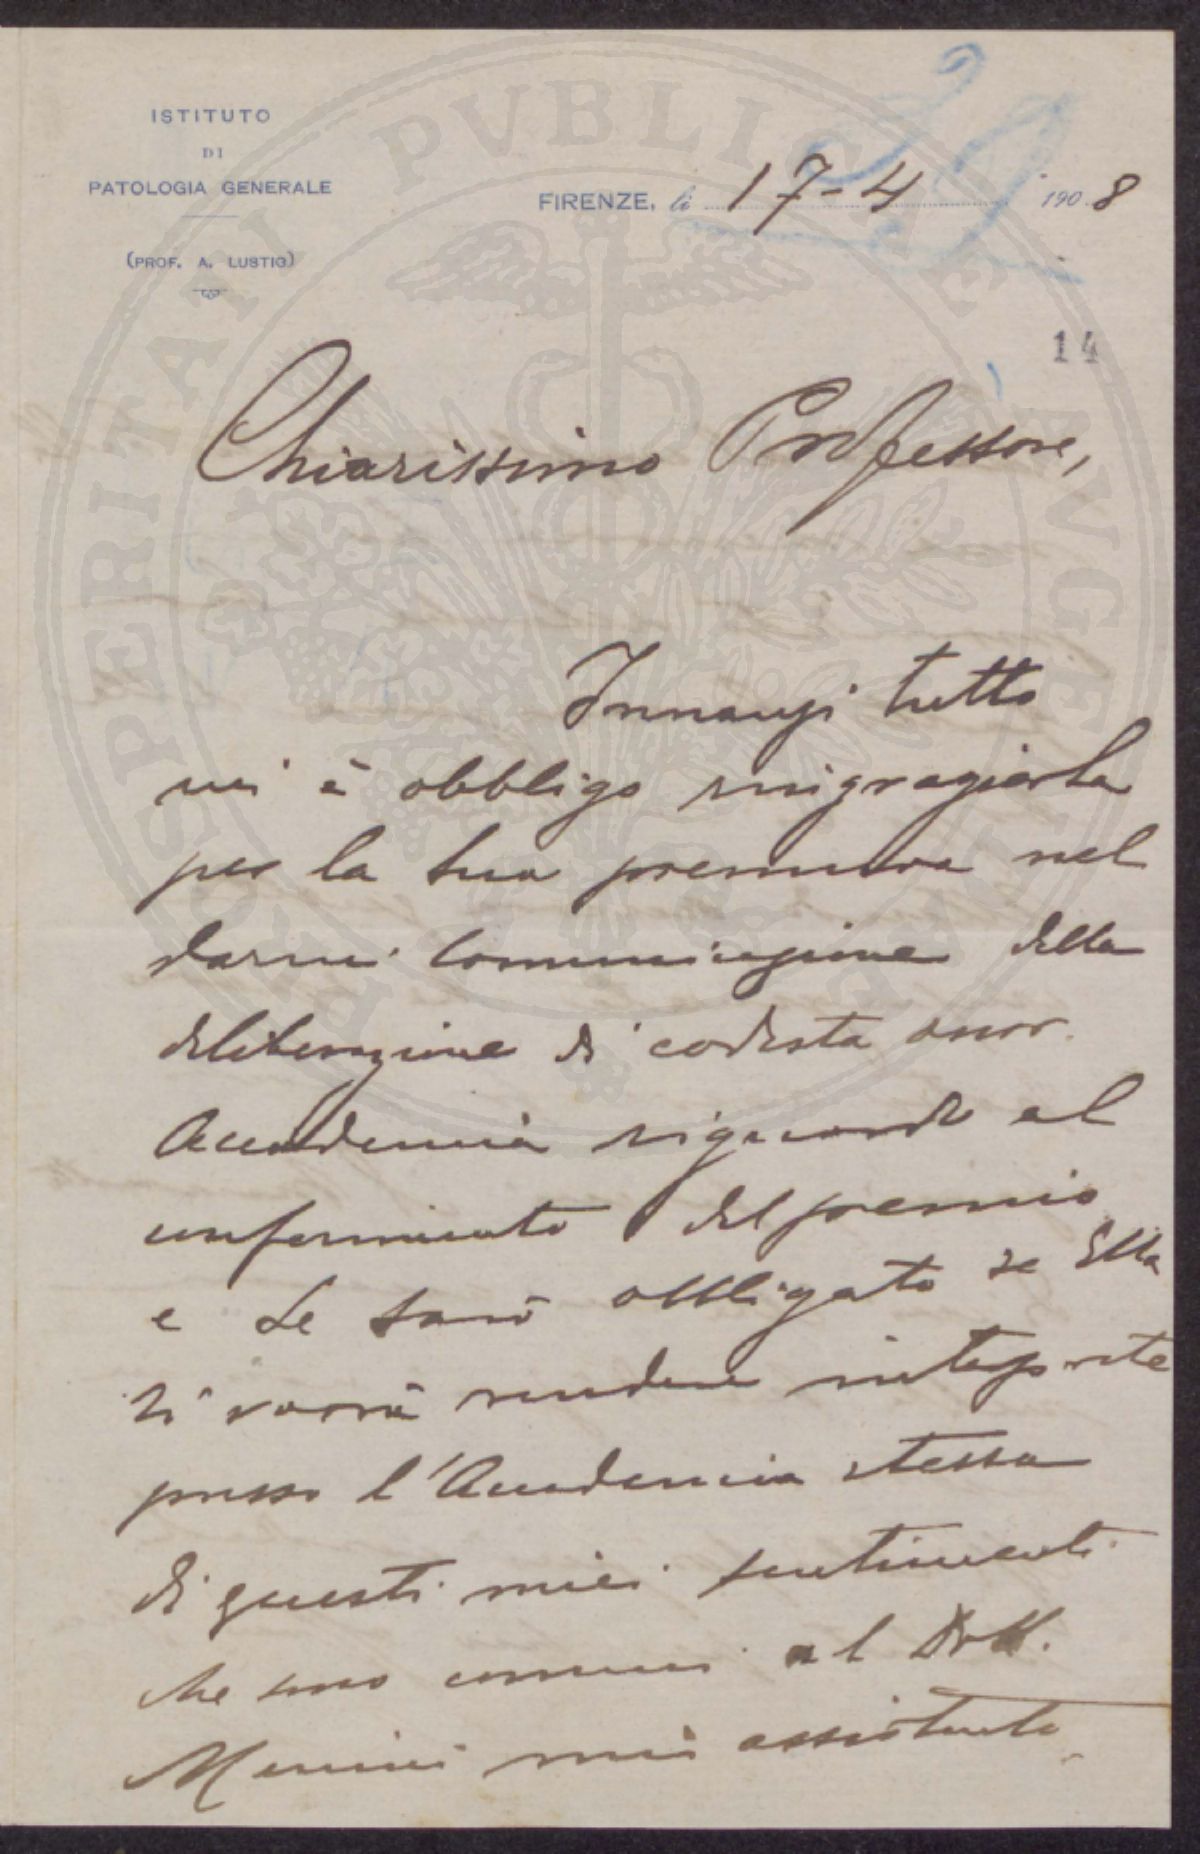 ISTITUTO
DI
PATOLOGIA GENERALE
(PROF. A. LUSTIG)
FIRENZE, li 17-4 1908
29
14
Chiarissimo Professore,
Innanzi tutto
mi è obbligo ringraziarla
per la sua premura nel
darmi comunicazione della
deliberazione di codesta onor.
Accademia riguardo al
conferimento del premio
e Le sarò obbligato se Ella
si vorrà rendere interprete
presso l'Accademia stessa
di questi miei sentimenti
che sono comuni al Dott.
mio assistente
PROSPERITATI PVBLICAE AVGENDAE